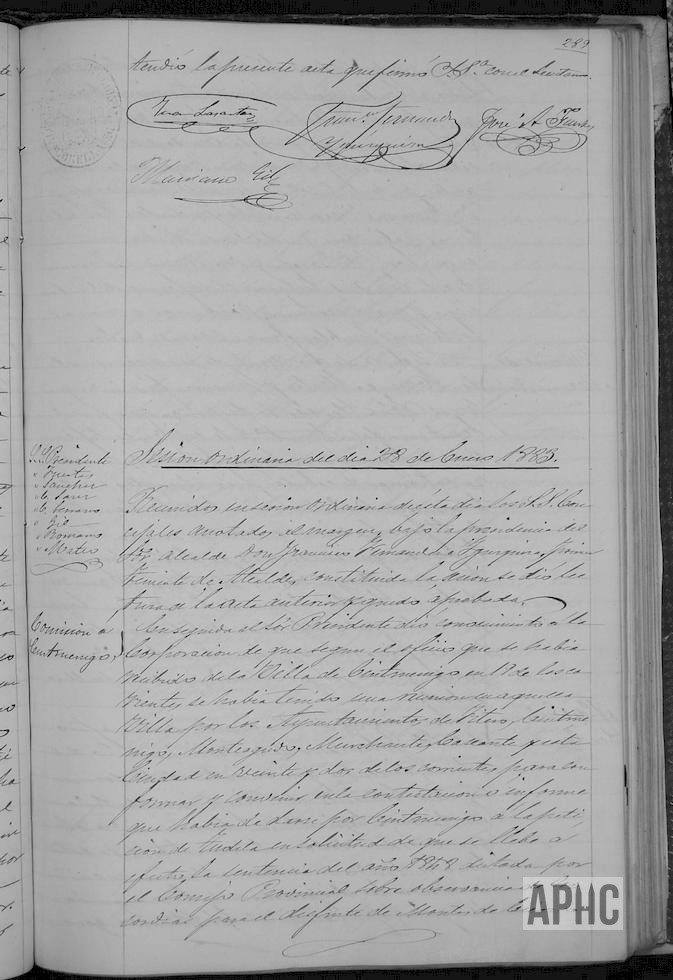 289
tendió la presente acta que firmó S. Sª. con el Secretario.
Juan Francº Fernandez José A
Yzurquiza
Mariano Gil
Sesion ordinaria del dia 28 de Enero 1883.
S.S. Presidente
" Fuertes
" Sanchez
" Serrano
" Gil
" Romano
" Mateo
Reunidos en sesion ordinaria de este dia los S.S. Con-
cejales anotados al margen, bajo la presidencia del
Sor. Alcalde Don Francisco Fernandez Yzurquiza, primer
Teniente de Alcalde, constituida la sesion se dió lec-
tura de la acta anterior y quedó aprobada.
Comision á
Cintruenigo.
En seguida el Sór Presidente dió conocimiento á la
Corporacion de que segun el oficio que se habia
recibido de la Villa de Cintruenigo en 18 de los co-
rrientes, se habia tenido una reunion en aquella
Villa por los Ayuntamientos de Fitero, Cintrue-
nigo, Monteagudo, Murchante, Cascante y esta
Ciudad en veinte y dos de los corrientes, para con-
formar y convenir en la contestacion ó informe
que habia de darse por Cintruenigo á la peti-
cion de Tudela en solicitud de que se lleve á
efecto la sentencia del año 1848 dictada por
el Consejo Provincial sobre observancia de
cordias para el disfrute de Montes de
APHC